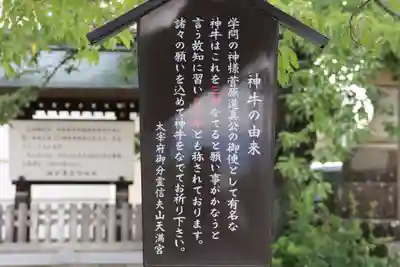 神牛の由来
学問の神様菅原道真公の御使として有名な
神牛はこれを なでると願い事がかなうと
言う故知に習い とも称されております。
諸々の願いを込めて神牛をなでてお祈り下さい。
太宰府御分霊信夫山天満宮